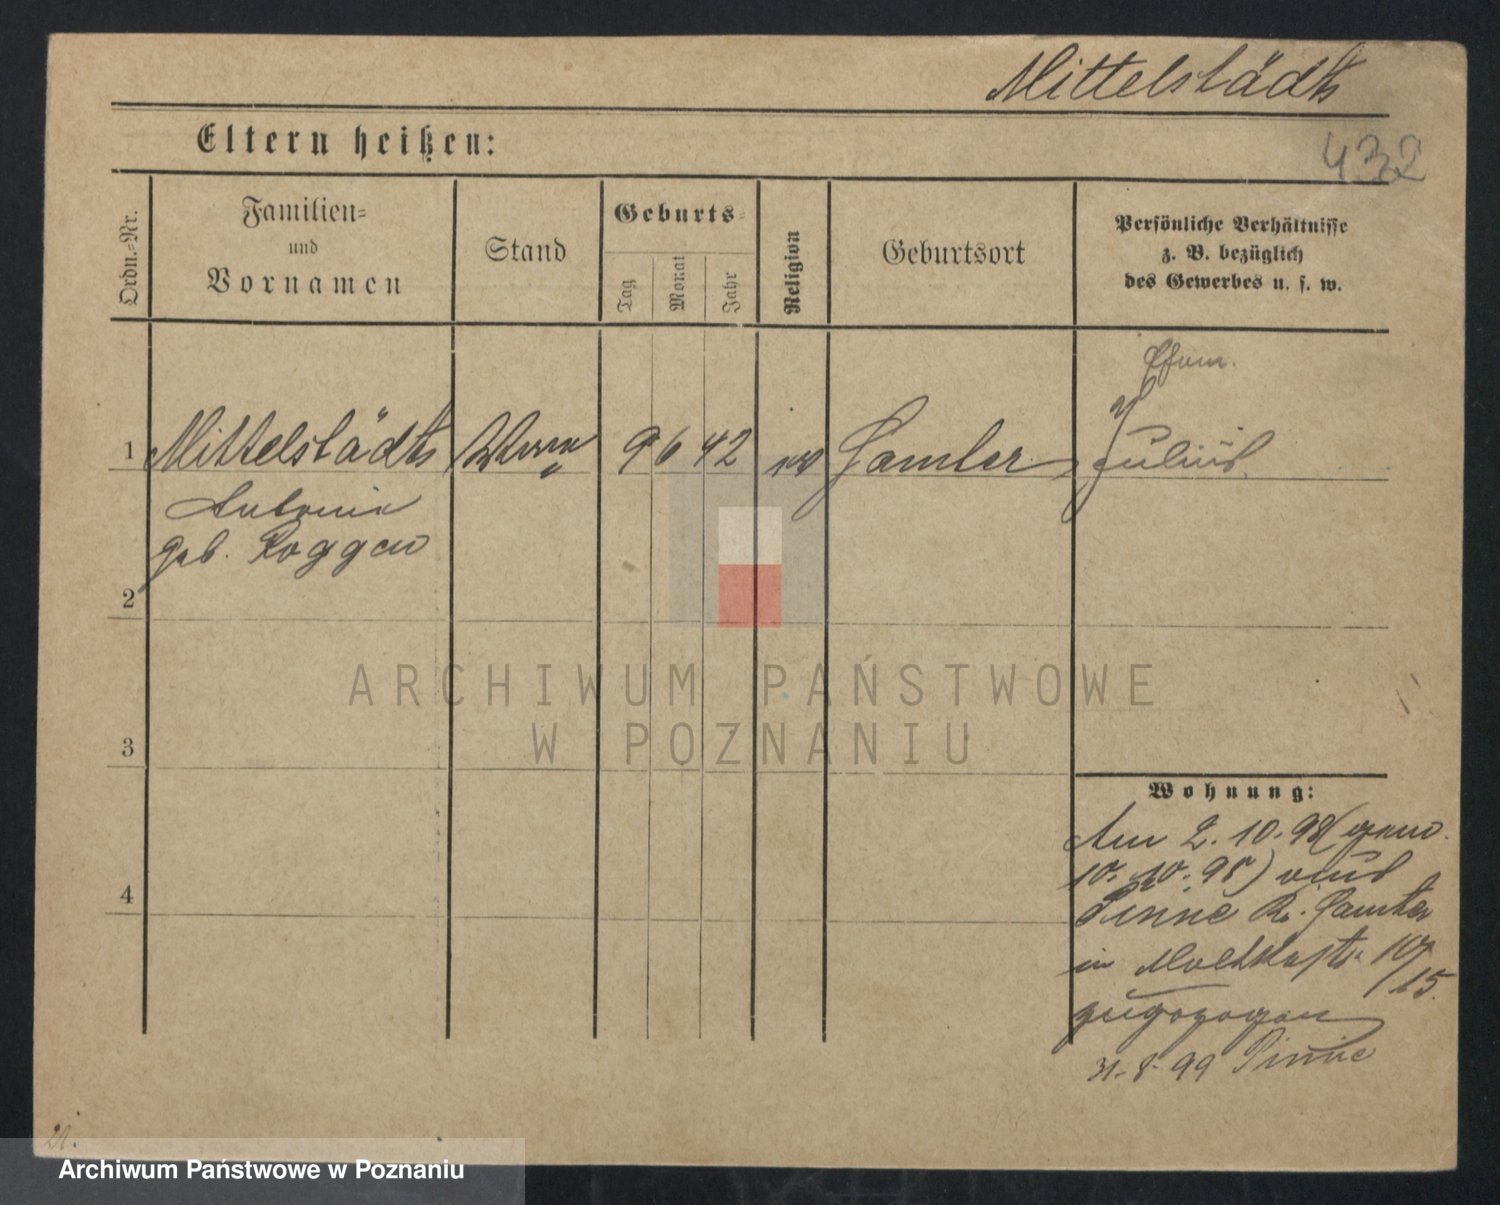 Mittelstädt
432
Eltern heißen:
Ordn.=Nr.
Familien=
und
Vornamen
Stand
Geburts=
Tag
Monat
Jahr
Religion
Geburtsort
Persönliche Verhältnisse
z. B. bezüglich
des Gewerbes u. s. w.
Efem.
1 Mittelstädt 9 6 42 ev Samter Julius
Antonie
geb. Roggen
2
3
4
Wohnung:
Am 2. 10. 98 (gem.
10. 10. 98) aus
Pinne Kr. Samter
in Moltkestr. 10/15.
zugezogen
31. 8. 99 Pinne
21.
ARCHIWUM PAŃSTWOWE
W POZNANIU
Archiwum Państwowe w Poznaniu